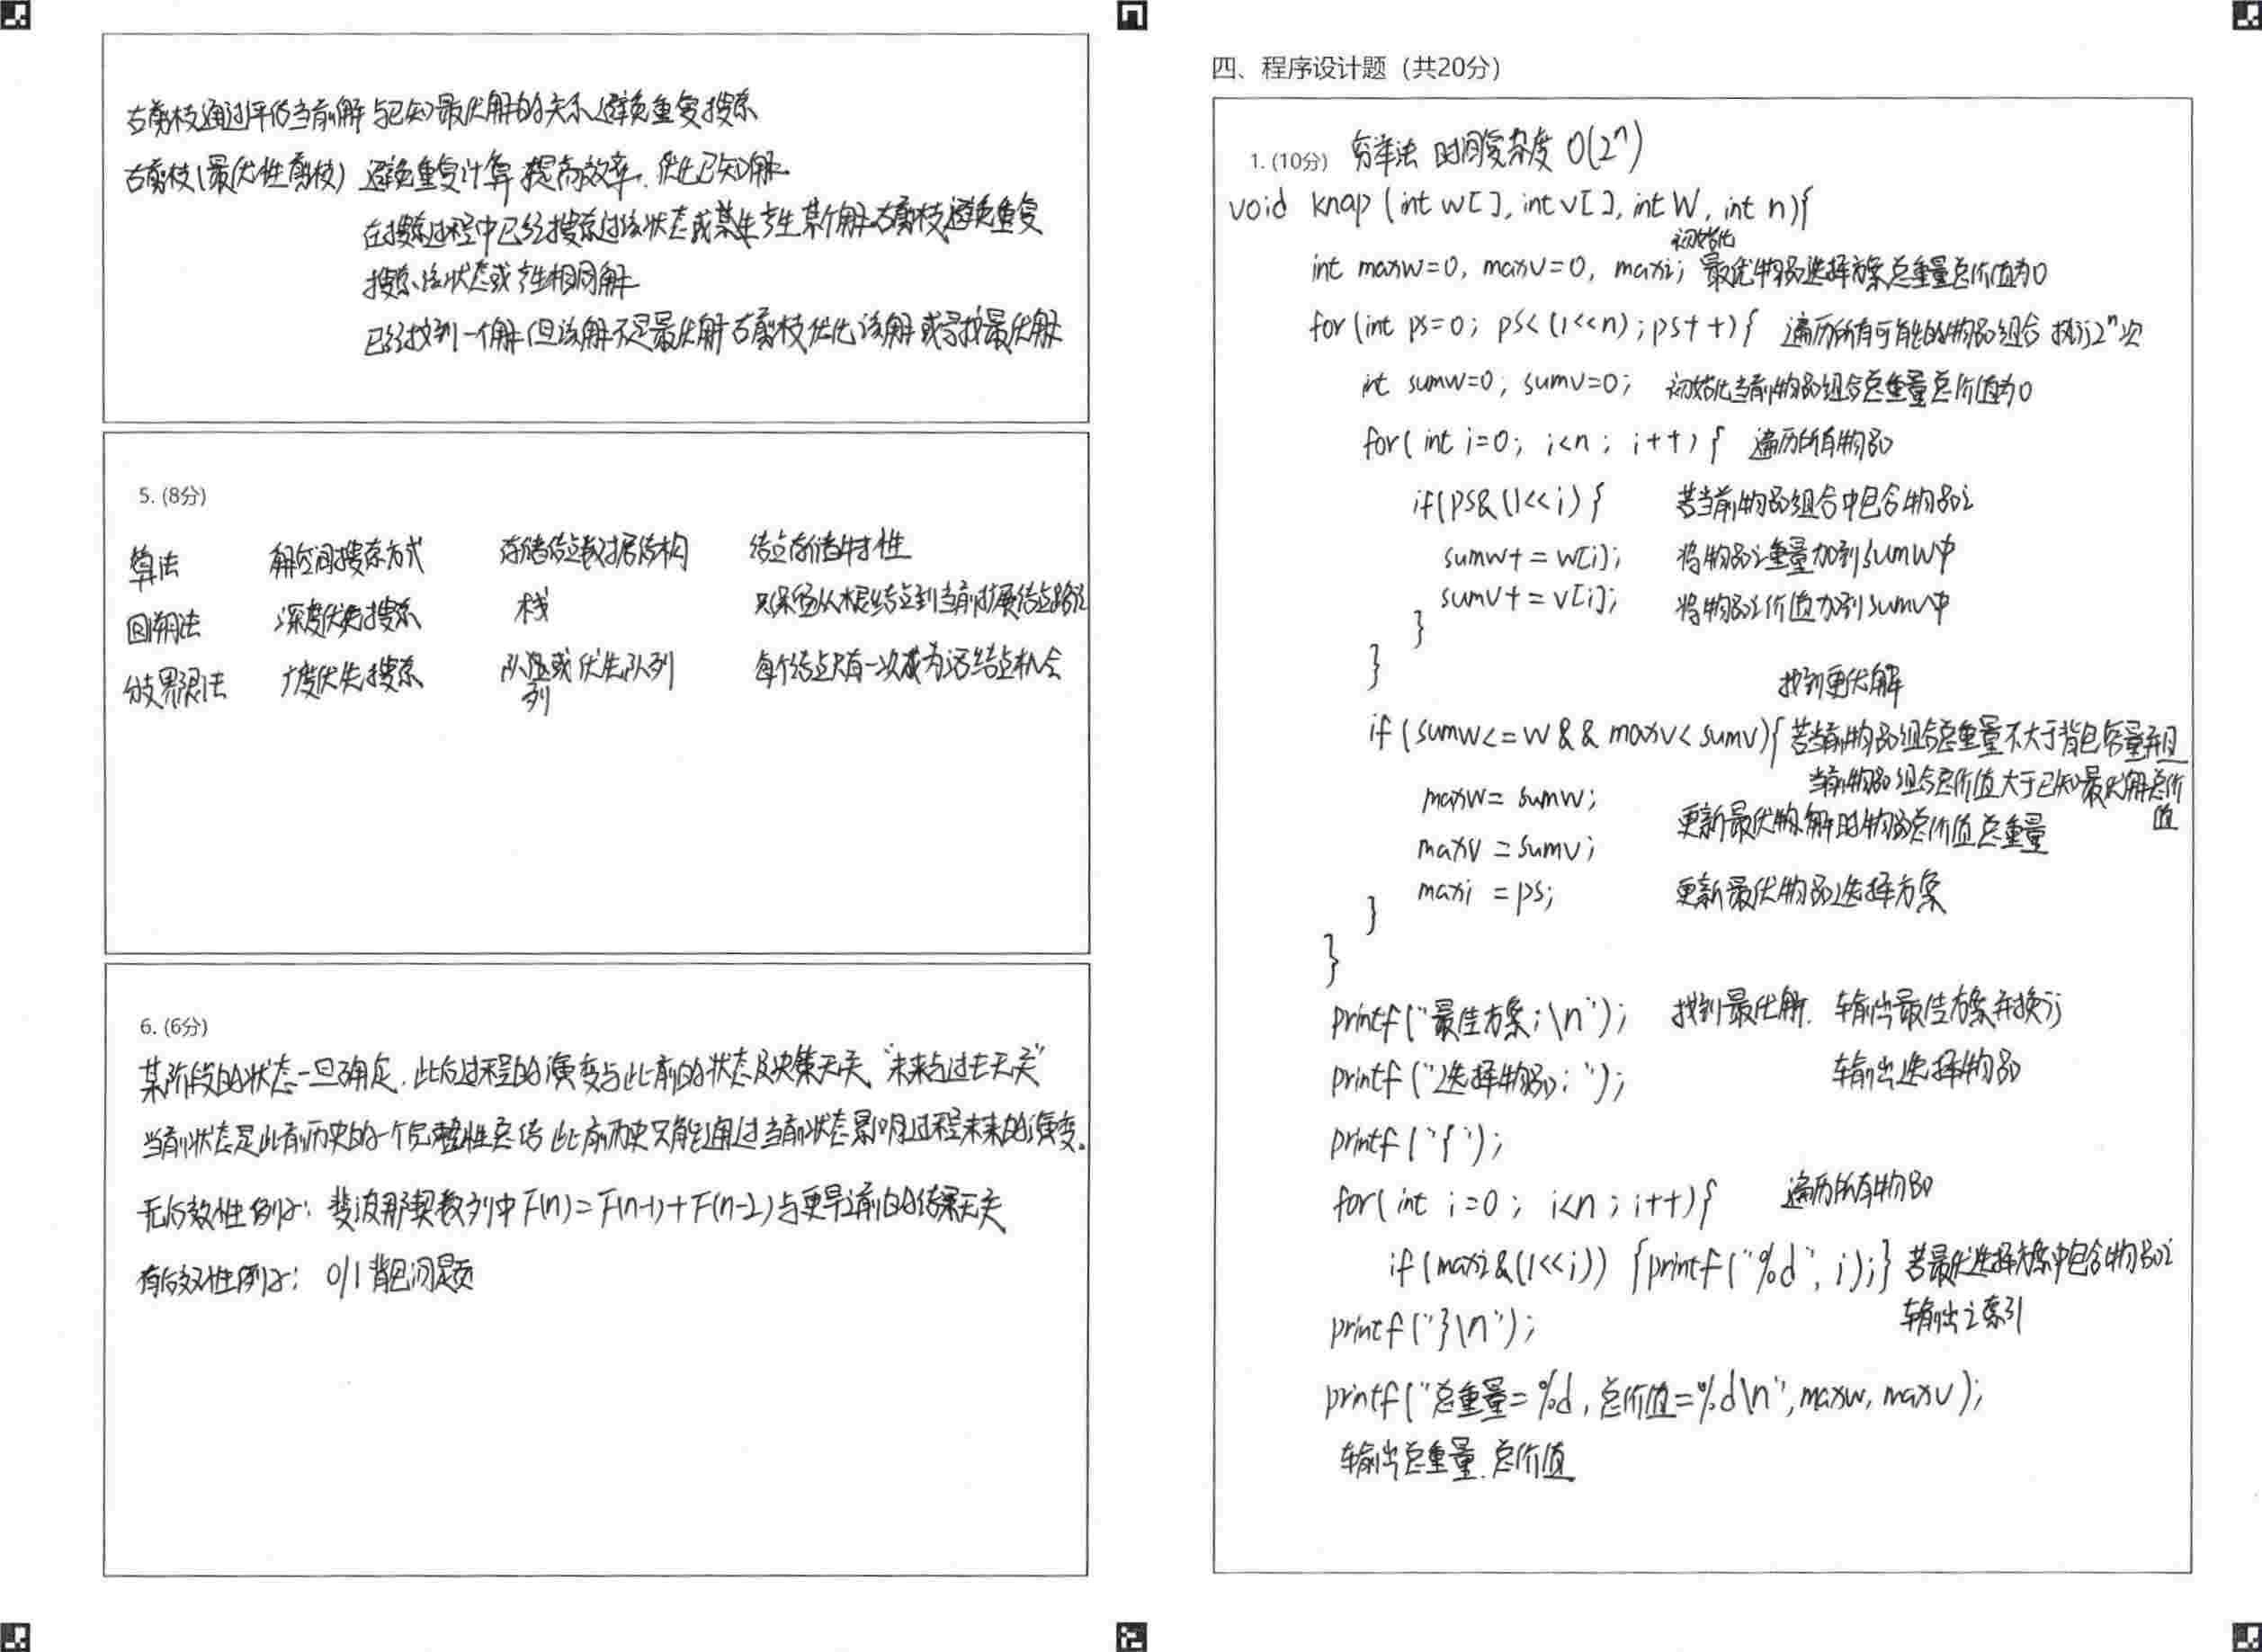 右剪枝通过评估当前解与已知最优解的关系避免重复搜索
右剪枝(最优性剪枝) 避免重复计算 提高效率. 优化已知解.
在搜索过程中已经搜索过该状态或某生产生某个解右剪枝避免重复
搜索该状态或产生相同解
已经找到一个解但该解不是最优解 右剪枝优化该解或寻找最优解
5. (8分)
算法 解空间搜索方式 存储结点数据结构 结点存储特性
回溯法 深度优先搜索 栈 只保留从根结点到当前扩展结点路径
分支界限法 广度优先搜索 队列或优先队列 每个结点只有一次成为活结点机会
6. (6分)
某阶段的状态一旦确定.此后过程的演变与此前的状态及决策无关 "未来与过去无关"
当前状态是此前历史的一个完整性总结 此前历史只能通过当前状态影响过程未来的演变。
无后效性例子: 斐波那契数列中 F(n)=F(n-1)+F(n-2)与更早之前的结果无关
有后效性例子: 0/1背包问题
四、程序设计题（共20分）
1. (10分) 穷举法 时间复杂度 O(2ⁿ)
void knap (int w[], int v[], int W, int n){
int maxw=0, maxv=0, maxi; 初始化最优物品选择方案总重量总价值为0
for(int ps=0; ps<(1<<n); ps++){ 遍历所有可能的物品组合 执行2ⁿ次
int sumw=0; sumv=0; 初始化当前物品组合总重量总价值为0
for( int i=0; i<n; i++) { 遍历所有物品
if(ps&(1<<i) { 若当前物品组合中包含物品i
sumw+=w[i]; 将物品i重量加到sumw中
sumv+=v[i]; 将物品i价值加到sumv中
}
}
找到更优解
if(sumw<=W && maxv<sumv){ 若当前物品组合总重量不大于背包容量并且
当前物品组合总价值大于已知最优解总价值
maxw= sumw; 更新最优解时物品总价值总重量
maxv = sumv;
maxi = ps; 更新最优物品选择方案
}
}
printf("最佳方案:\n"); 找到最优解. 输出最佳方案并换行
printf("选择物品:"); 输出选择物品
printf("{");
for( int i=0; i<n; i++){ 遍历所有物品
if(maxi&(1<<i)) {printf("%d", i);} 若最优选择方案中包含物品i
输出i索引
printf("}\n");
printf("总重量=%d, 总价值=%d\n", maxw, maxv);
输出总重量.总价值